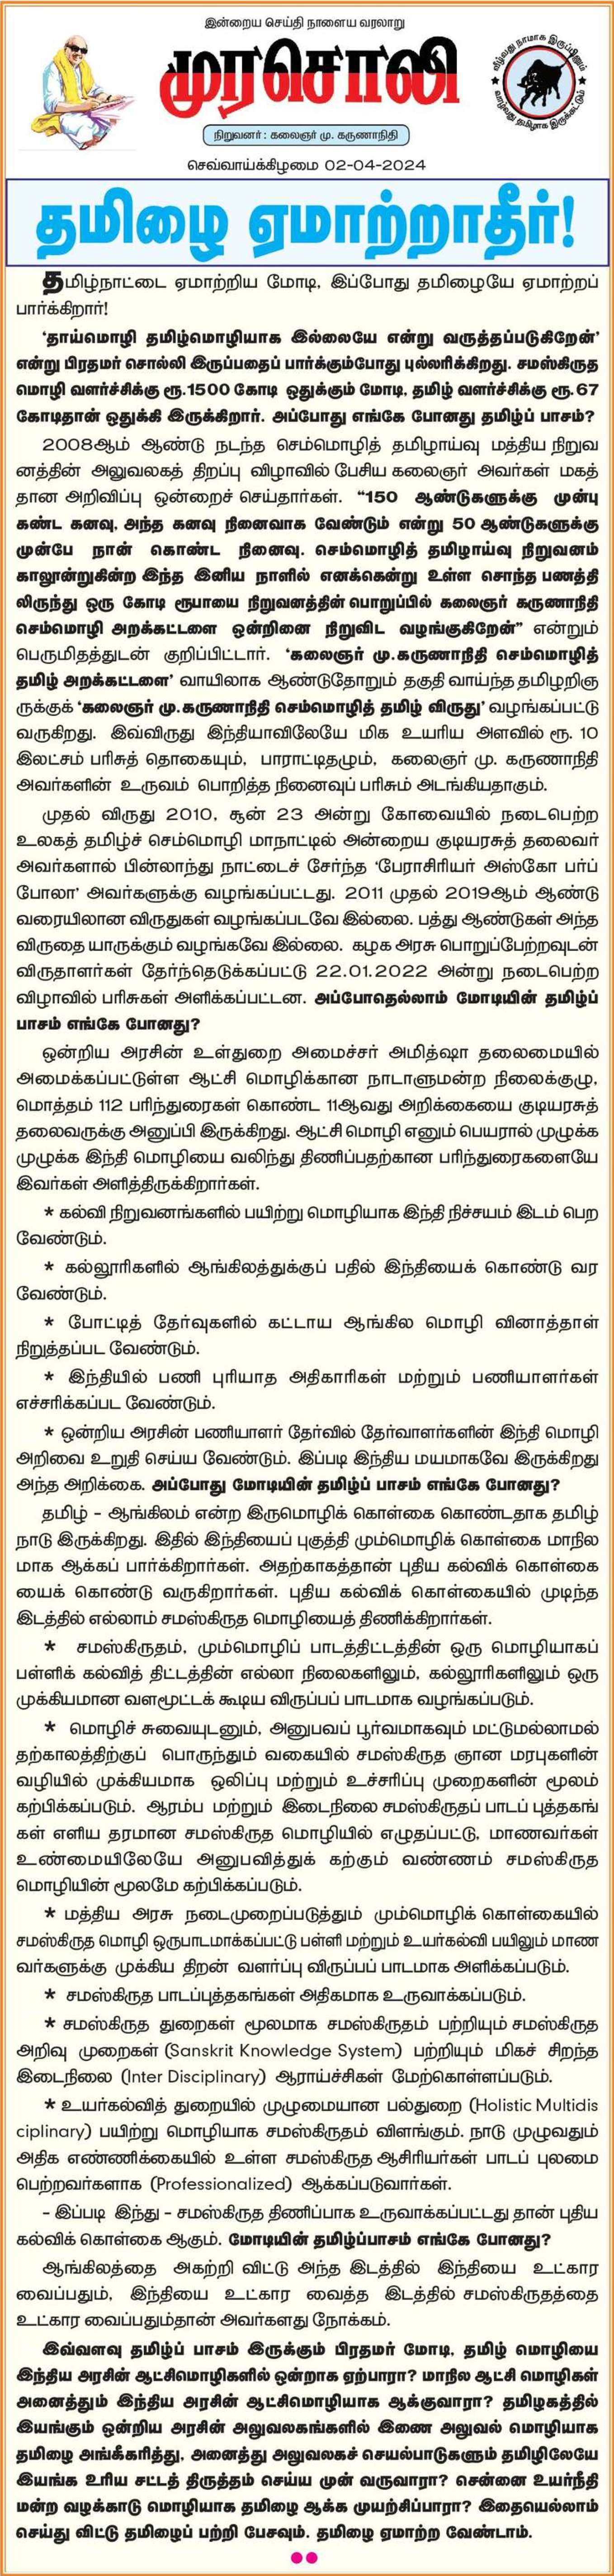 இன்றைய செய்தி நாளைய வரலாறு
முரசொலி
வீழ்வது நாமாக இருப்பினும்
வாழ்வது தமிழாக இருக்கட்டும்
நிறுவனர் : கலைஞர் மு. கருணாநிதி
செவ்வாய்க்கிழமை 02-04-2024
தமிழை ஏமாற்றாதீர்!
தமிழ்நாட்டை ஏமாற்றிய மோடி, இப்போது தமிழையே ஏமாற்றப்
பார்க்கிறார்!
‘தாய்மொழி தமிழ்மொழியாக இல்லையே என்று வருத்தப்படுகிறேன்’
என்று பிரதமர் சொல்லி இருப்பதைப் பார்க்கும்போது புல்லரிக்கிறது. சமஸ்கிருத
மொழி வளர்ச்சிக்கு ரூ.1500 கோடி ஒதுக்கும் மோடி, தமிழ் வளர்ச்சிக்கு ரூ.67
கோடிதான் ஒதுக்கி இருக்கிறார். அப்போது எங்கே போனது தமிழ்ப் பாசம்?
2008ஆம் ஆண்டு நடந்த செம்மொழித் தமிழாய்வு மத்திய நிறுவ
னத்தின் அலுவலகத் திறப்பு விழாவில் பேசிய கலைஞர் அவர்கள் மகத்
தான அறிவிப்பு ஒன்றைச் செய்தார்கள். “150 ஆண்டுகளுக்கு முன்பு
கண்ட கனவு, அந்த கனவு நினைவாக வேண்டும் என்று 50 ஆண்டுகளுக்கு
முன்பே நான் கொண்ட நினைவு. செம்மொழித் தமிழாய்வு நிறுவனம்
காலூன்றுகின்ற இந்த இனிய நாளில் எனக்கென்று உள்ள சொந்த பணத்தி
லிருந்து ஒரு கோடி ரூபாயை நிறுவனத்தின் பொறுப்பில் கலைஞர் கருணாநிதி
செம்மொழி அறக்கட்டளை ஒன்றினை நிறுவிட வழங்குகிறேன்” என்றும்
பெருமிதத்துடன் குறிப்பிட்டார். ‘கலைஞர் மு.கருணாநிதி செம்மொழித்
தமிழ் அறக்கட்டளை’ வாயிலாக ஆண்டுதோறும் தகுதி வாய்ந்த தமிழறிஞ
ருக்குக் ‘கலைஞர் மு.கருணாநிதி செம்மொழித் தமிழ் விருது’ வழங்கப்பட்டு
வருகிறது. இவ்விருது இந்தியாவிலேயே மிக உயரிய அளவில் ரூ. 10
இலட்சம் பரிசுத் தொகையும், பாராட்டிதழும், கலைஞர் மு. கருணாநிதி
அவர்களின் உருவம் பொறித்த நினைவுப் பரிசும் அடங்கியதாகும்.
முதல் விருது 2010, சூன் 23 அன்று கோவையில் நடைபெற்ற
உலகத் தமிழ்ச் செம்மொழி மாநாட்டில் அன்றைய குடியரசுத் தலைவர்
அவர்களால் பின்லாந்து நாட்டைச் சேர்ந்த ‘பேராசிரியர் அஸ்கோ பர்ப்
போலா’ அவர்களுக்கு வழங்கப்பட்டது. 2011 முதல் 2019ஆம் ஆண்டு
வரையிலான விருதுகள் வழங்கப்படவே இல்லை. பத்து ஆண்டுகள் அந்த
விருதை யாருக்கும் வழங்கவே இல்லை. கழக அரசு பொறுப்பேற்றவுடன்
விருதாளர்கள் தேர்ந்தெடுக்கப்பட்டு 22.01.2022 அன்று நடைபெற்ற
விழாவில் பரிசுகள் அளிக்கப்பட்டன. அப்போதெல்லாம் மோடியின் தமிழ்ப்
பாசம் எங்கே போனது?
ஒன்றிய அரசின் உள்துறை அமைச்சர் அமித்ஷா தலைமையில்
அமைக்கப்பட்டுள்ள ஆட்சி மொழிக்கான நாடாளுமன்ற நிலைக்குழு,
மொத்தம் 112 பரிந்துரைகள் கொண்ட 11ஆவது அறிக்கையை குடியரசுத்
தலைவருக்கு அனுப்பி இருக்கிறது. ஆட்சி மொழி எனும் பெயரால் முழுக்க
முழுக்க இந்தி மொழியை வலிந்து திணிப்பதற்கான பரிந்துரைகளையே
இவர்கள் அளித்திருக்கிறார்கள்.
* கல்வி நிறுவனங்களில் பயிற்று மொழியாக இந்தி நிச்சயம் இடம் பெற
வேண்டும்.
* கல்லூரிகளில் ஆங்கிலத்துக்குப் பதில் இந்தியைக் கொண்டு வர
வேண்டும்.
* போட்டித் தேர்வுகளில் கட்டாய ஆங்கில மொழி வினாத்தாள்
நிறுத்தப்பட வேண்டும்.
* இந்தியில் பணி புரியாத அதிகாரிகள் மற்றும் பணியாளர்கள்
எச்சரிக்கப்பட வேண்டும்.
* ஒன்றிய அரசின் பணியாளர் தேர்வில் தேர்வாளர்களின் இந்தி மொழி
அறிவை உறுதி செய்ய வேண்டும். இப்படி இந்திய மயமாகவே இருக்கிறது
அந்த அறிக்கை. அப்போது மோடியின் தமிழ்ப் பாசம் எங்கே போனது?
தமிழ் – ஆங்கிலம் என்ற இருமொழிக் கொள்கை கொண்டதாக தமிழ்
நாடு இருக்கிறது. இதில் இந்தியைப் புகுத்தி மும்மொழிக் கொள்கை மாநில
மாக ஆக்கப் பார்க்கிறார்கள். அதற்காகத்தான் புதிய கல்விக் கொள்கை
யைக் கொண்டு வருகிறார்கள். புதிய கல்விக் கொள்கையில் முடிந்த
இடத்தில் எல்லாம் சமஸ்கிருத மொழியைத் திணிக்கிறார்கள்.
* சமஸ்கிருதம், மும்மொழிப் பாடத்திட்டத்தின் ஒரு மொழியாகப்
பள்ளிக் கல்வித் திட்டத்தின் எல்லா நிலைகளிலும், கல்லூரிகளிலும் ஒரு
முக்கியமான வளமூட்டக் கூடிய விருப்பப் பாடமாக வழங்கப்படும்.
* மொழிச் சுவையுடனும், அனுபவப் பூர்வமாகவும் மட்டுமல்லாமல்
தற்காலத்திற்குப் பொருந்தும் வகையில் சமஸ்கிருத ஞான மரபுகளின்
வழியில் முக்கியமாக ஒலிப்பு மற்றும் உச்சரிப்பு முறைகளின் மூலம்
கற்பிக்கப்படும். ஆரம்ப மற்றும் இடைநிலை சமஸ்கிருதப் பாடப் புத்தகங்
கள் எளிய தரமான சமஸ்கிருத மொழியில் எழுதப்பட்டு, மாணவர்கள்
உண்மையிலேயே அனுபவித்துக் கற்கும் வண்ணம் சமஸ்கிருத
மொழியின் மூலமே கற்பிக்கப்படும்.
* மத்திய அரசு நடைமுறைப்படுத்தும் மும்மொழிக் கொள்கையில்
சமஸ்கிருத மொழி ஒருபாடமாக்கப்பட்டு பள்ளி மற்றும் உயர்கல்வி பயிலும் மாண
வர்களுக்கு முக்கிய திறன் வளர்ப்பு விருப்பப் பாடமாக அளிக்கப்படும்.
* சமஸ்கிருத பாடப்புத்தகங்கள் அதிகமாக உருவாக்கப்படும்.
* சமஸ்கிருத துறைகள் மூலமாக சமஸ்கிருதம் பற்றியும் சமஸ்கிருத
அறிவு முறைகள் (Sanskrit Knowledge System) பற்றியும் மிகச் சிறந்த
இடைநிலை (Inter Disciplinary) ஆராய்ச்சிகள் மேற்கொள்ளப்படும்.
* உயர்கல்வித் துறையில் முழுமையான பல்துறை (Holistic Multidis
ciplinary) பயிற்று மொழியாக சமஸ்கிருதம் விளங்கும். நாடு முழுவதும்
அதிக எண்ணிக்கையில் உள்ள சமஸ்கிருத ஆசிரியர்கள் பாடப் புலமை
பெற்றவர்களாக (Professionalized) ஆக்கப்படுவார்கள்.
– இப்படி இந்து – சமஸ்கிருத திணிப்பாக உருவாக்கப்பட்டது தான் புதிய
கல்விக் கொள்கை ஆகும். மோடியின் தமிழ்ப்பாசம் எங்கே போனது?
ஆங்கிலத்தை அகற்றி விட்டு அந்த இடத்தில் இந்தியை உட்கார
வைப்பதும், இந்தியை உட்கார வைத்த இடத்தில் சமஸ்கிருதத்தை
உட்கார வைப்பதும்தான் அவர்களது நோக்கம்.
இவ்வளவு தமிழ்ப் பாசம் இருக்கும் பிரதமர் மோடி, தமிழ் மொழியை
இந்திய அரசின் ஆட்சிமொழிகளில் ஒன்றாக ஏற்பாரா? மாநில ஆட்சி மொழிகள்
அனைத்தும் இந்திய அரசின் ஆட்சிமொழியாக ஆக்குவாரா? தமிழகத்தில்
இயங்கும் ஒன்றிய அரசின் அலுவலகங்களில் இணை அலுவல் மொழியாக
தமிழை அங்கீகரித்து, அனைத்து அலுவலகச் செயல்பாடுகளும் தமிழிலேயே
இயங்க உரிய சட்டத் திருத்தம் செய்ய முன் வருவாரா? சென்னை உயர்நீதி
மன்ற வழக்காடு மொழியாக தமிழை ஆக்க முயற்சிப்பாரா? இதையெல்லாம்
செய்து விட்டு தமிழைப் பற்றி பேசவும். தமிழை ஏமாற்ற வேண்டாம்.